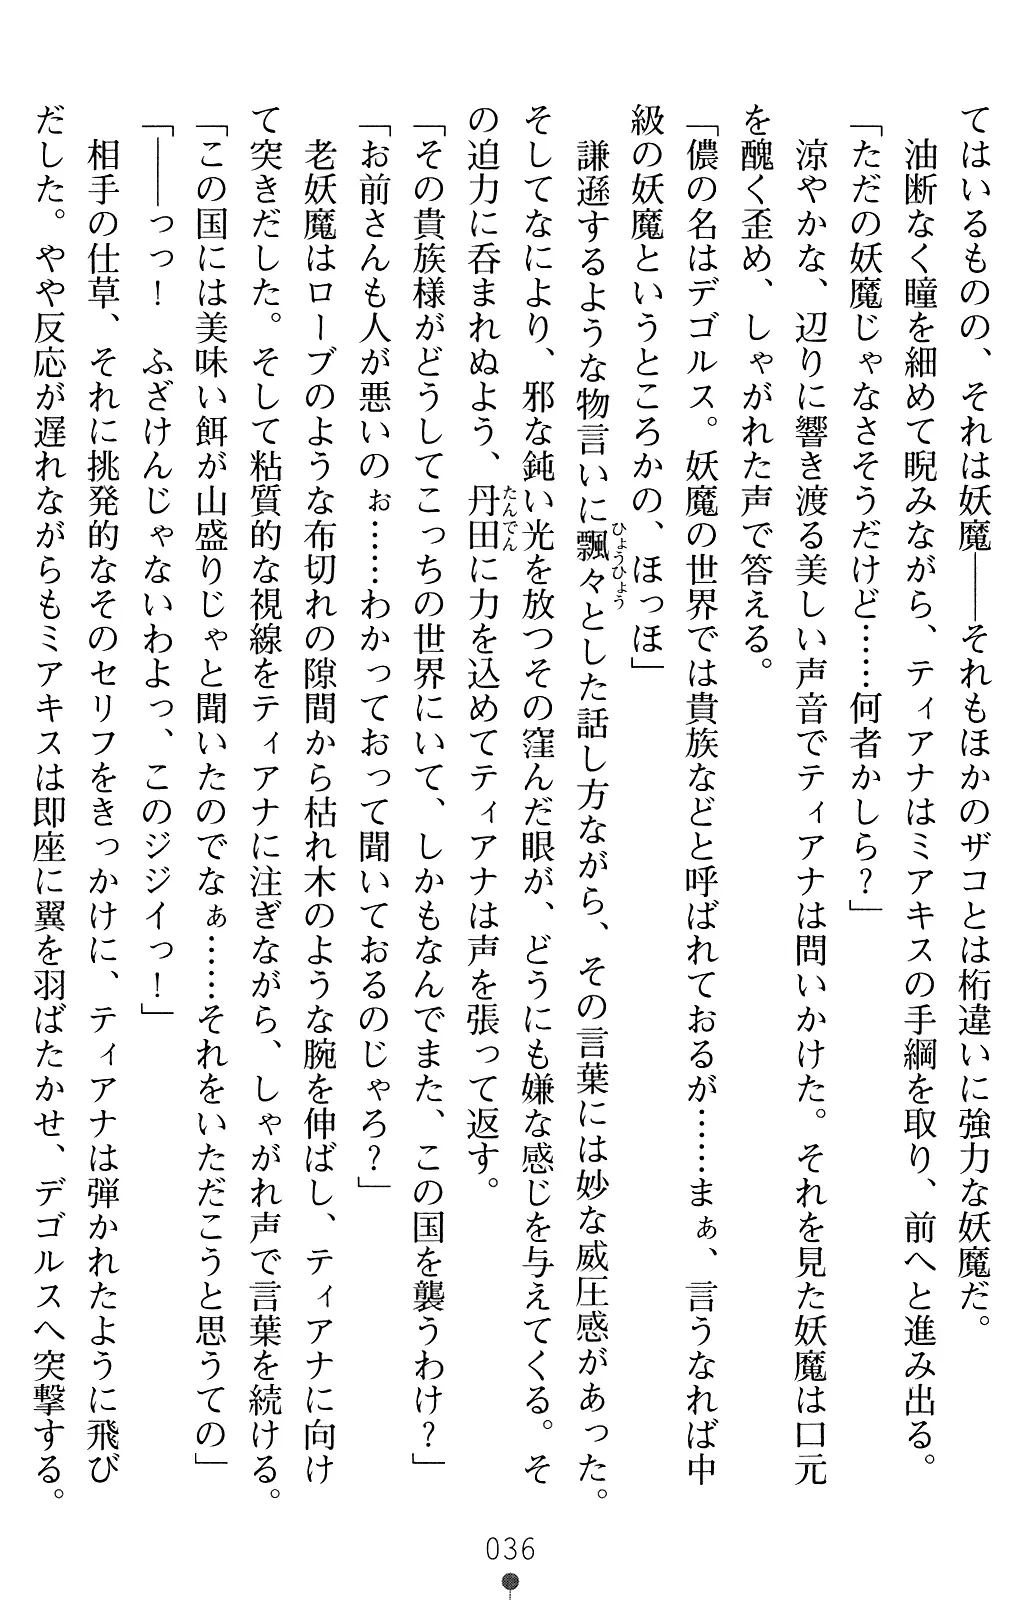 てはいるものの、それは妖魔――それもほかのザコとは桁違いに強力な妖魔だ。
油断なく瞳を細めて睨みながら、ティアナはミアキスの手綱を取り、前へと進み出る。
「ただの妖魔じゃなさそうだけど……何者かしら？」
涼やかな、辺りに響き渡る美しい声音でティアナは問いかけた。それを見た妖魔は口元
を醜く歪め、しゃがれた声で答える。
「儂の名はデゴルス。妖魔の世界では貴族などと呼ばれておるが……まぁ、言うなれば中
級の妖魔というところかの、ほっほ」
謙遜するような物言いに飄々とした話し方ながら、その言葉には妙な威圧感があった。
ひょうひょう
そしてなにより、邪な鈍い光を放つその窪んだ眼が、どうにも嫌な感じを与えてくる。そ
の迫力に呑まれぬよう、丹田に力を込めてティアナは声を張って返す。
たんでん
「その貴族様がどうしてこっちの世界にいて、しかもなんでまた、この国を襲うわけ？」
「お前さんも人が悪いのぉ……わかっておって聞いておるのじゃろ？」
老妖魔はローブのような布切れの隙間から枯れ木のような腕を伸ばし、ティアナに向け
て突きだした。そして粘質的な視線をティアナに注ぎながら、しゃがれ声で言葉を続ける。
「この国には美味い餌が山盛りじゃと聞いたのでなぁ……それをいただこうと思うての」
「――っっ！　ふざけんじゃないわよっ、このジジイっ！」
相手の仕草、それに挑発的なそのセリフをきっかけに、ティアナは弾かれたように飛び
だした。やや反応が遅れながらもミアキスは即座に翼を羽ばたかせ、デゴルスへ突撃する。
036